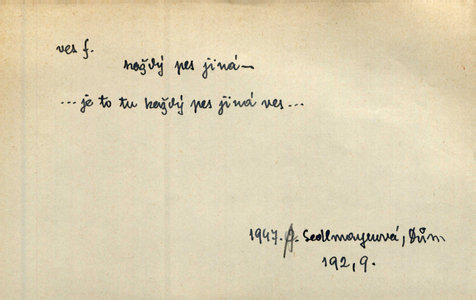 ves f.
každý pes jiná—
... je to tu každý pes jiná ves...
1947. J. Sedlmayerová, Dům
192, 9.